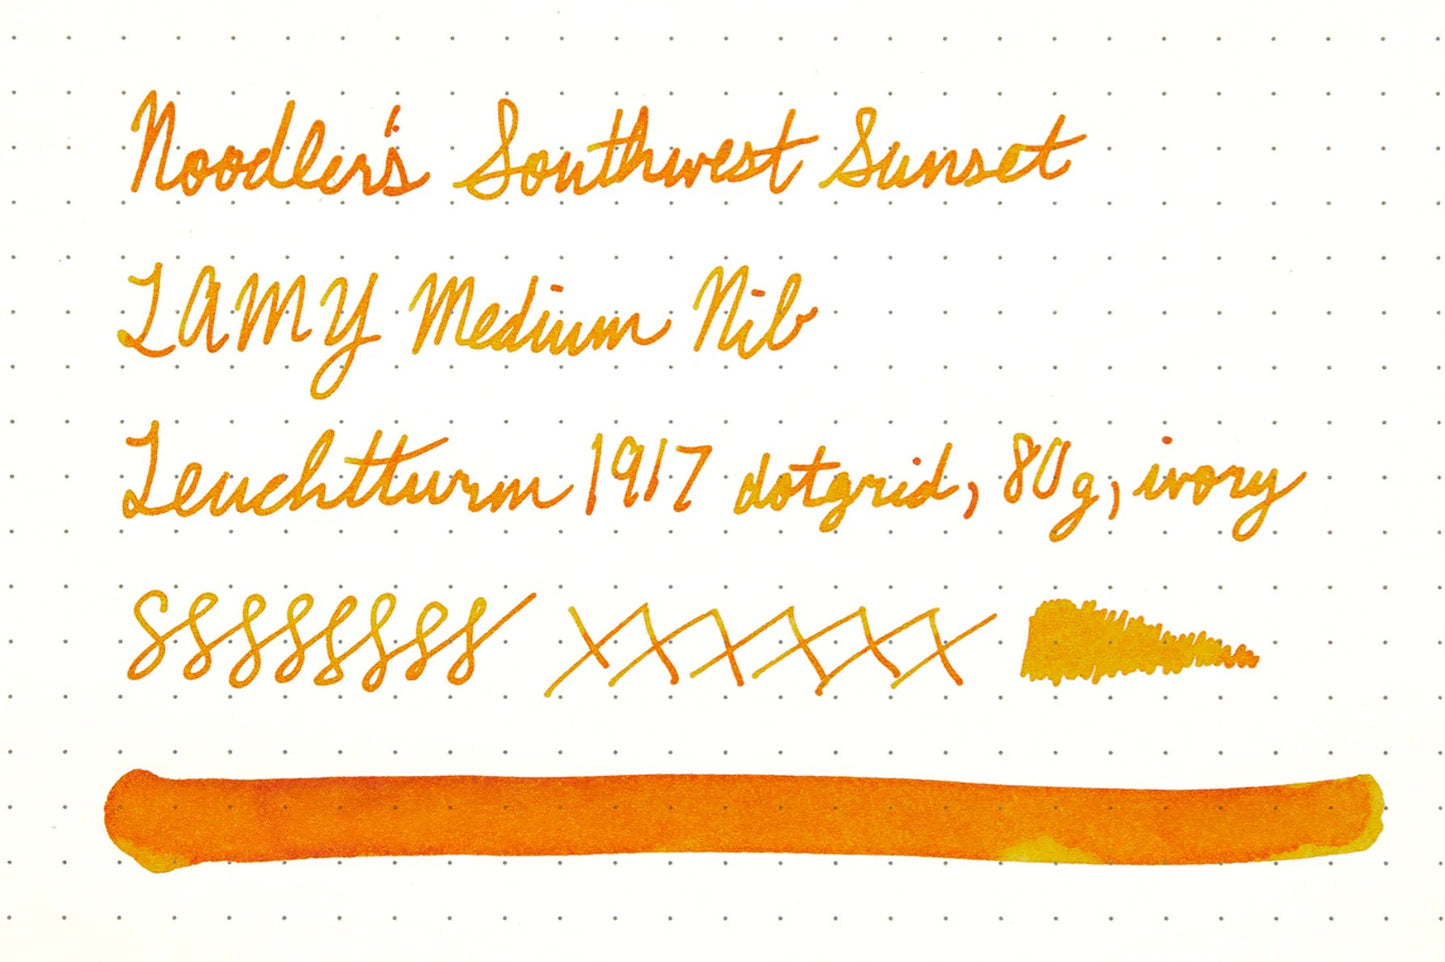 Noodler's Southwest Sunset
LAMY Medium Nib
Leuchtturm 1917 dotgrid, 80g, ivory